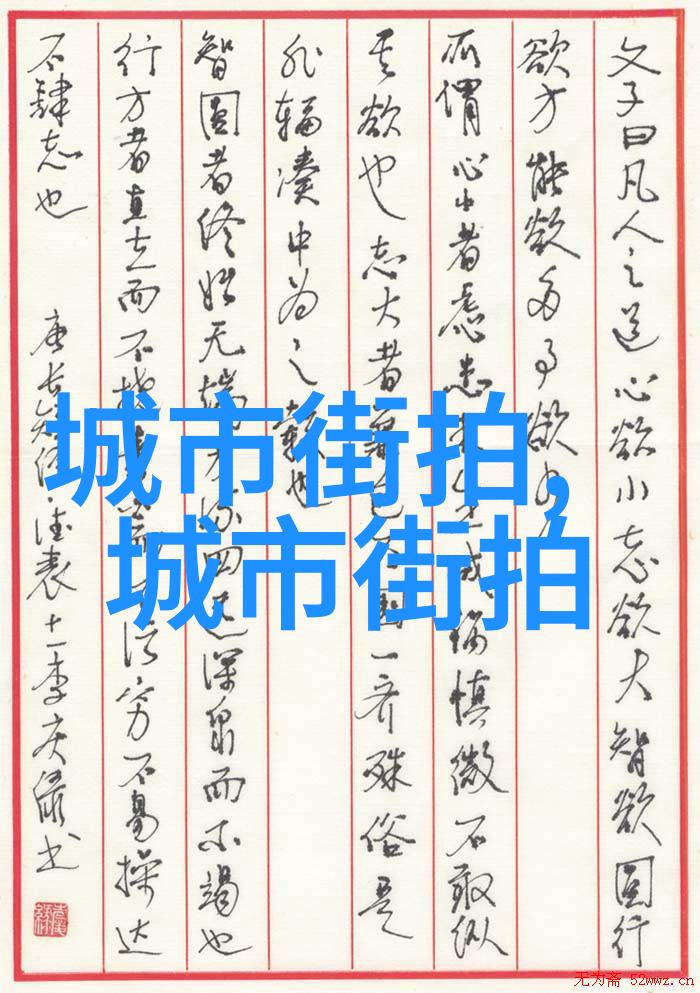 文子曰凡人之道心欲小志欲大智欲圆行
欲方能欲多事欲少
所谓心小者虑患未生戒祸慎微不敢纵
其欲也志大者兼包万国一齐殊俗是
非辐凑中为之毂也
智圆者终始无端方流四远深泉而不竭也
行方者直立而不挠素白而不污穷不易操达
不肆志也
唐长短经德表十一李庆书
城市街拍,
城市街拍
无为斋 52wwz.cn